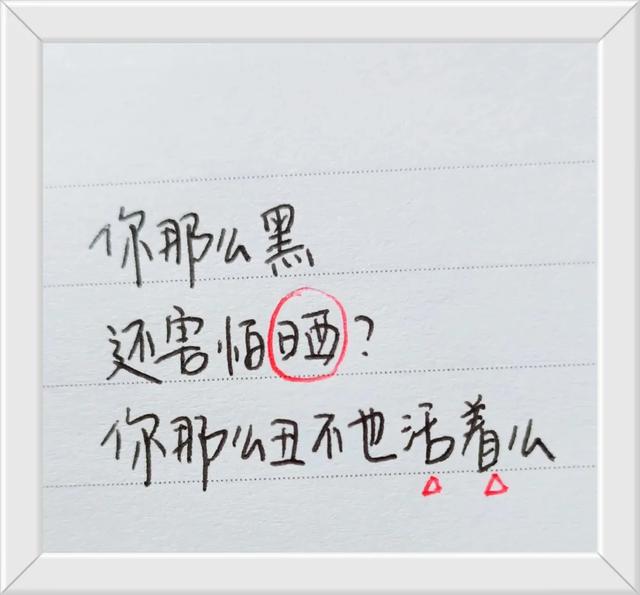 你那么黑
还害怕晒?
你那么丑不也活着么